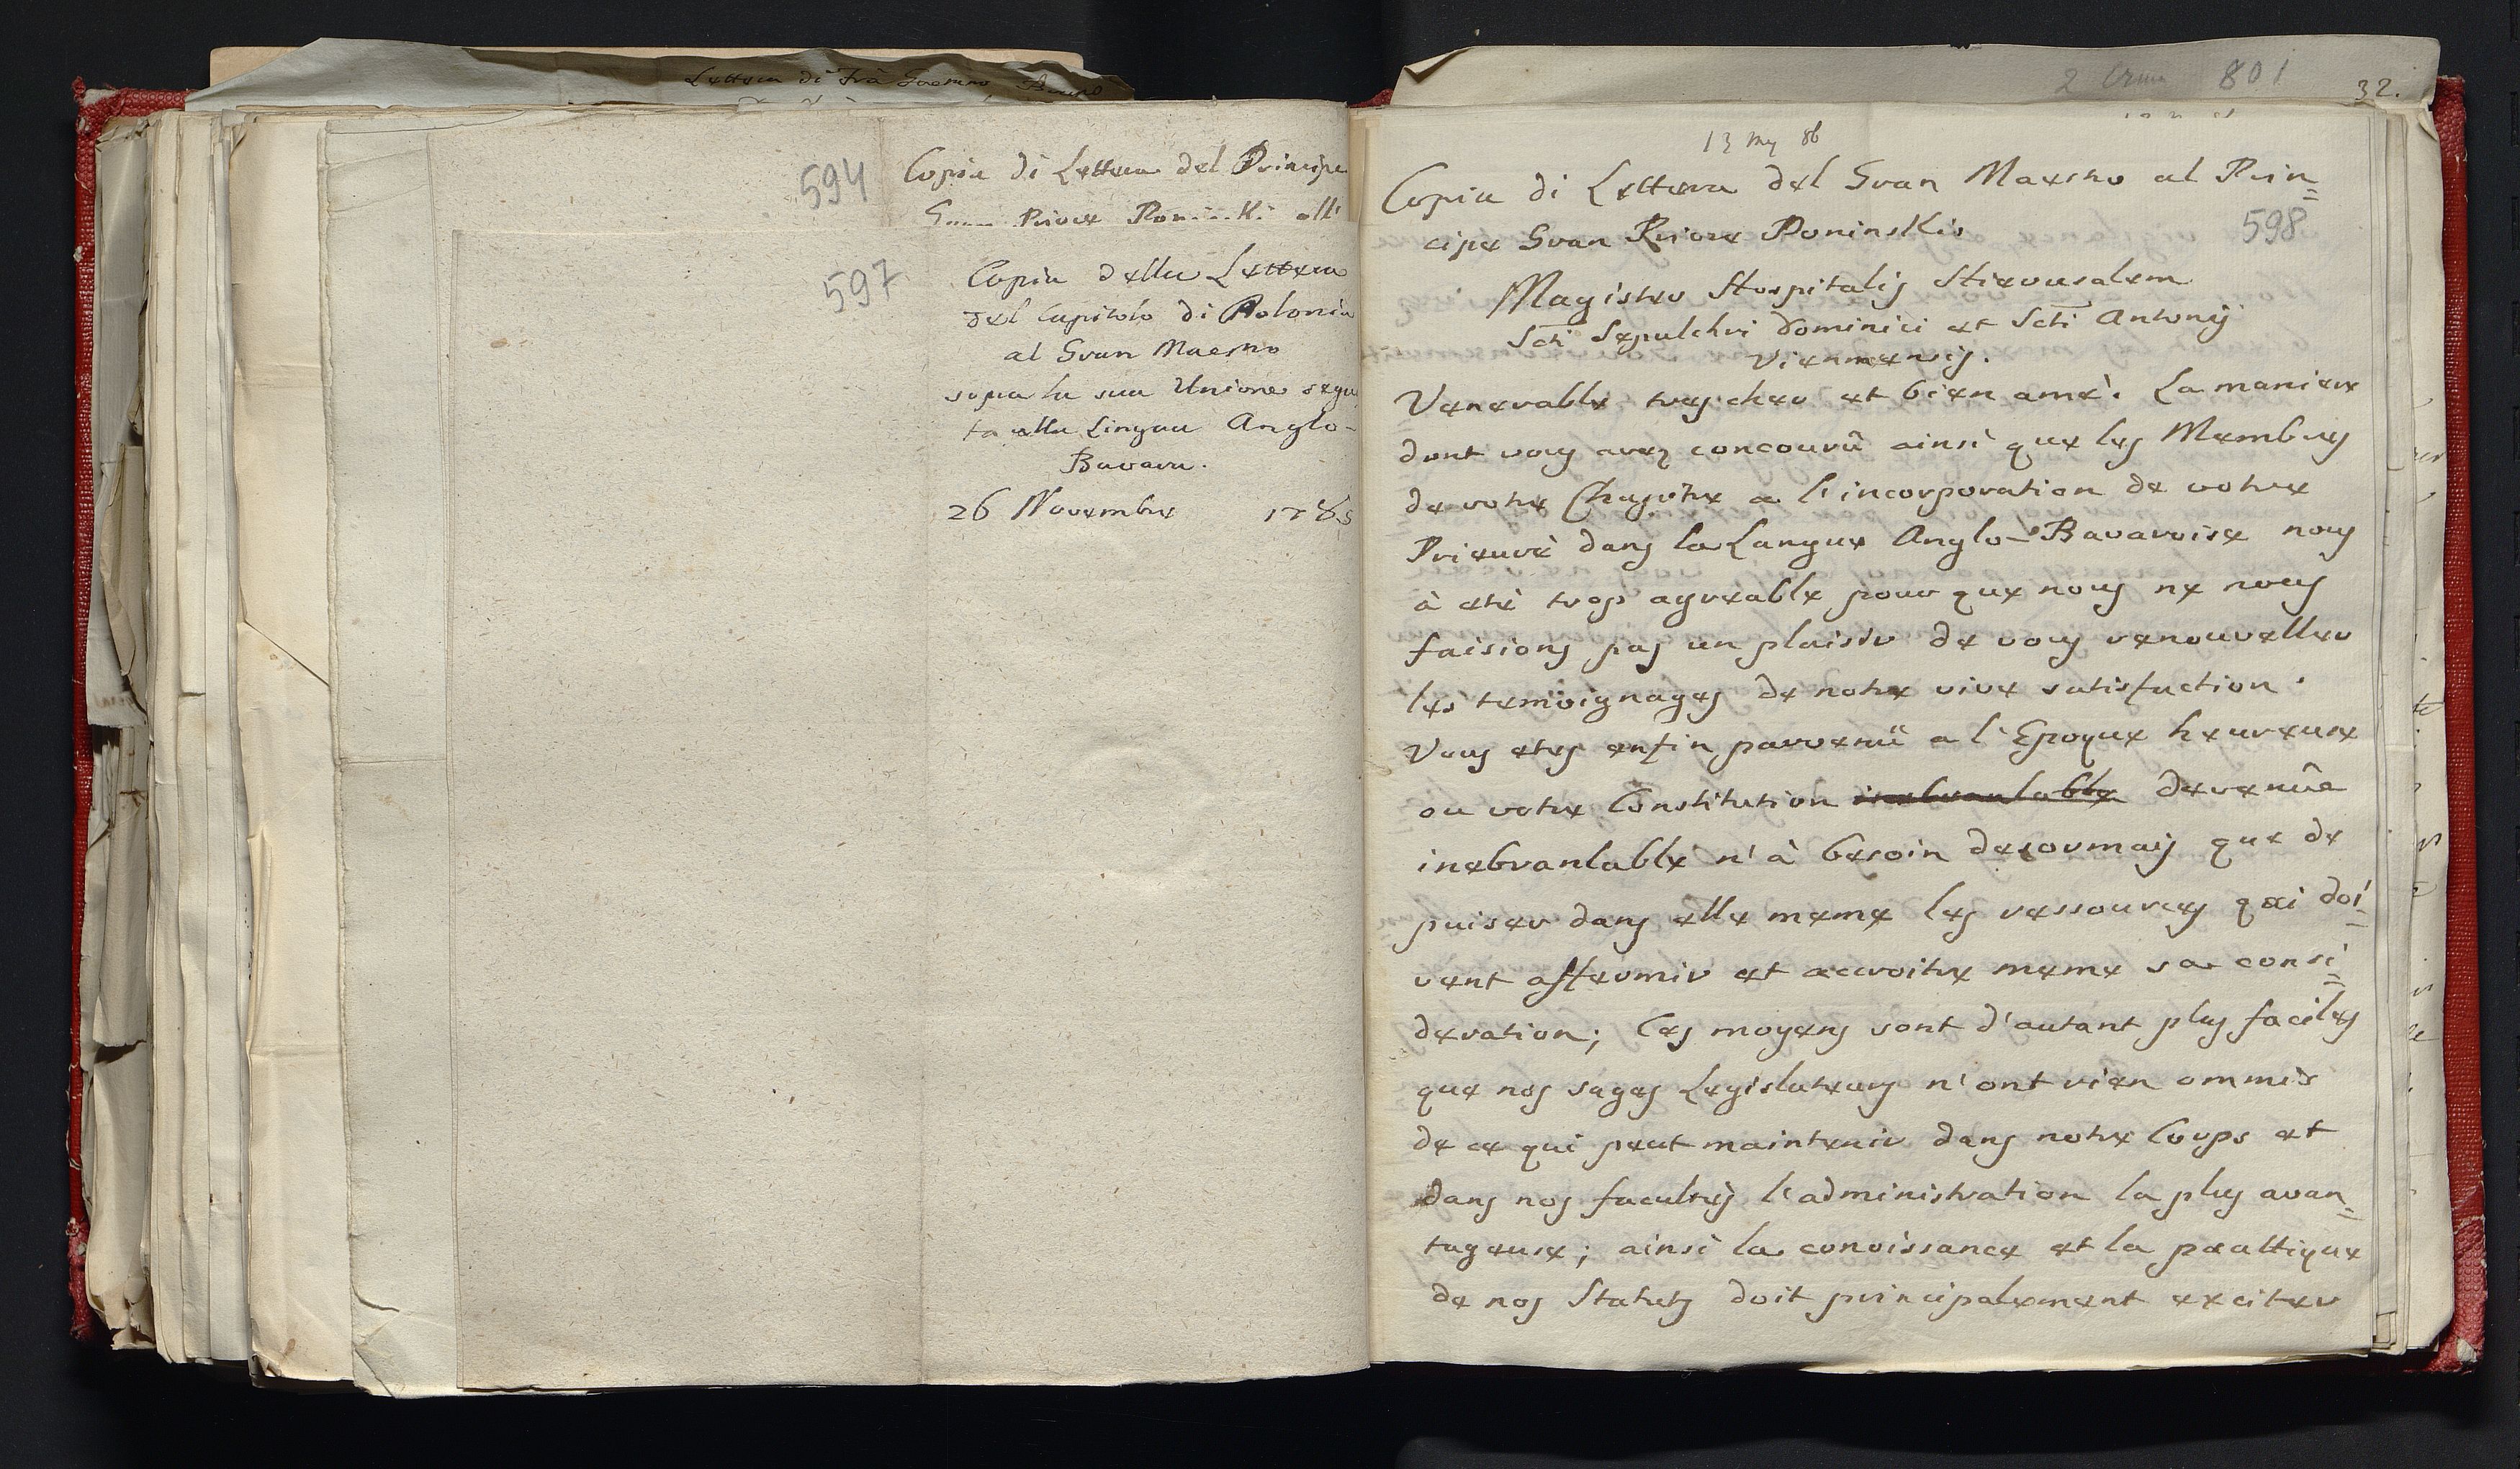 Lettera di Frà Gaetano
594
Copia di Lettera del Principe
Gran Priore Poninski all'
597
Copia della Lettera
del Capitolo di Polonia
al Gran Maestro
sopra la sua Unione segui
ta alla Lingua Anglo-
Bavara.
26 Novembre 1785
2 801
32.
13 My 86
Copia di Lettera del Gran Maestro al Prin=
cipe Gran Priore Poninskio
598
Magister Hospitalis Stierousalem
Scti Sepulchri Dominici et Scti Antonij
Viennensis.
Venerable tres cher et bien amè. La maniere
dont vous avez concourû ainsi que les Membres
de votre Chapitre a l'incorporation de votre
Prieurè dans la Langue Anglo-Bavaroise nous
à etè trop agreable pour que nous ne nous
faisions pas un plaisir de vous renouveller
les temoignages de notre vive satisfaction.
Vous etes enfin parvenû a l'Epoque heureuse
ou votre Constitution inebranlable devenûe
inebranlable n'à besoin desormais que de
puiser dans elle meme les ressources qui doi=
vent affermir et accroitre meme sa consi=
deration; Ces moyens sont d'autant plus faciles
que nos sages Legislateurs n'ont rien ommis
de ce qui peut maintenir dans notre Corps et
dans nos facultès l'administration la plus avan=
tageuse; ainsi la conoissance et la practique
de nos Statuts doit principalement exciter